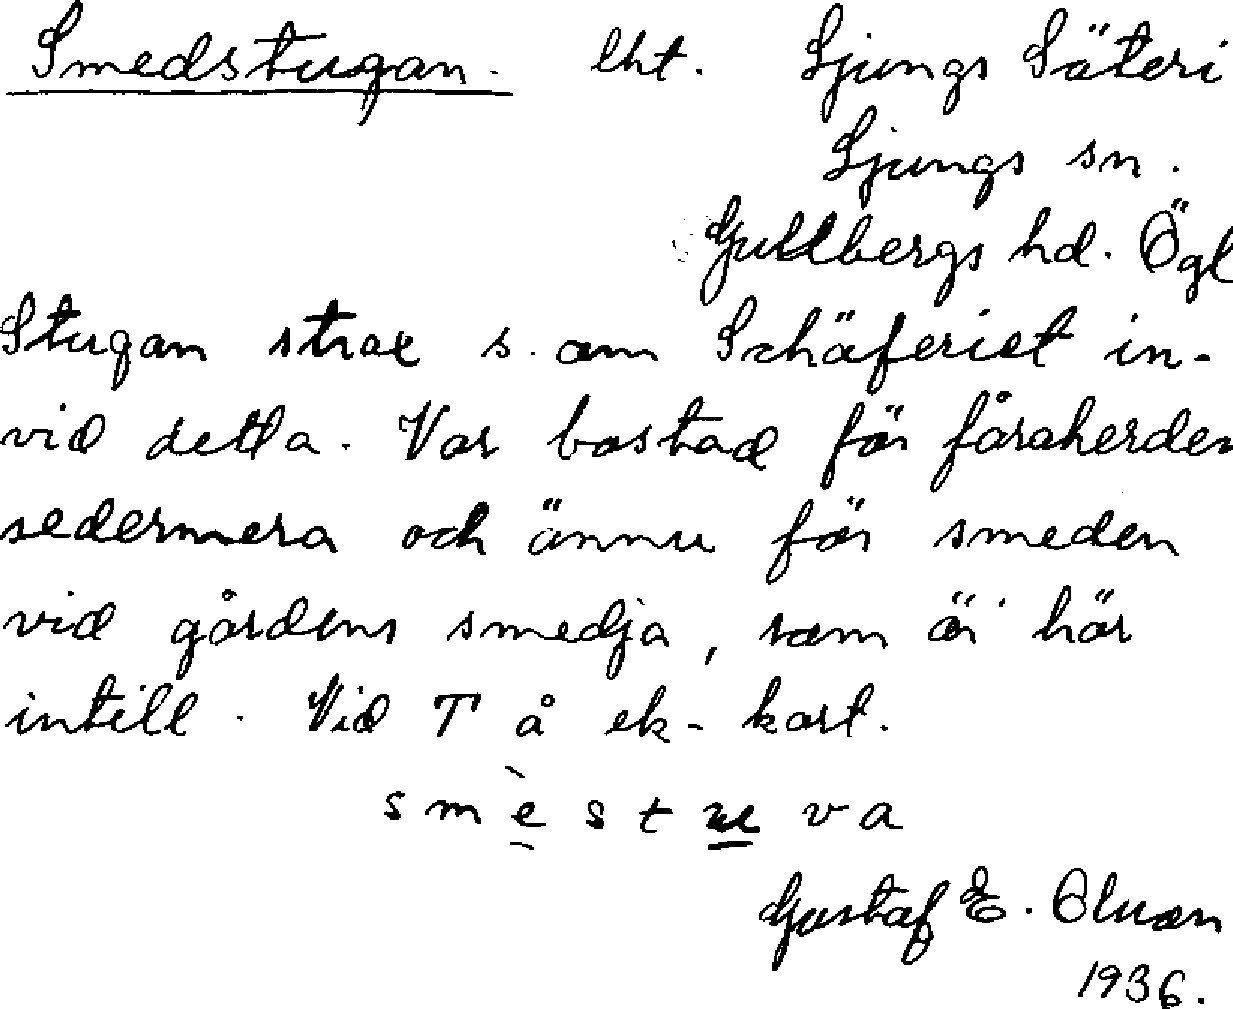 Smedstugan. lht. Ljungs Säteri
Ljungs sn.
Gullbergs hd. Ögl
Stugan strax s. om Schäferiet in-
vid detta. Var bostad för fåraherden
sedermera och ännu för smeden
vid gårdens smedja, som är här
intill. Vid T å ek-kart.
smèstuva
Gustaf E.
1936.